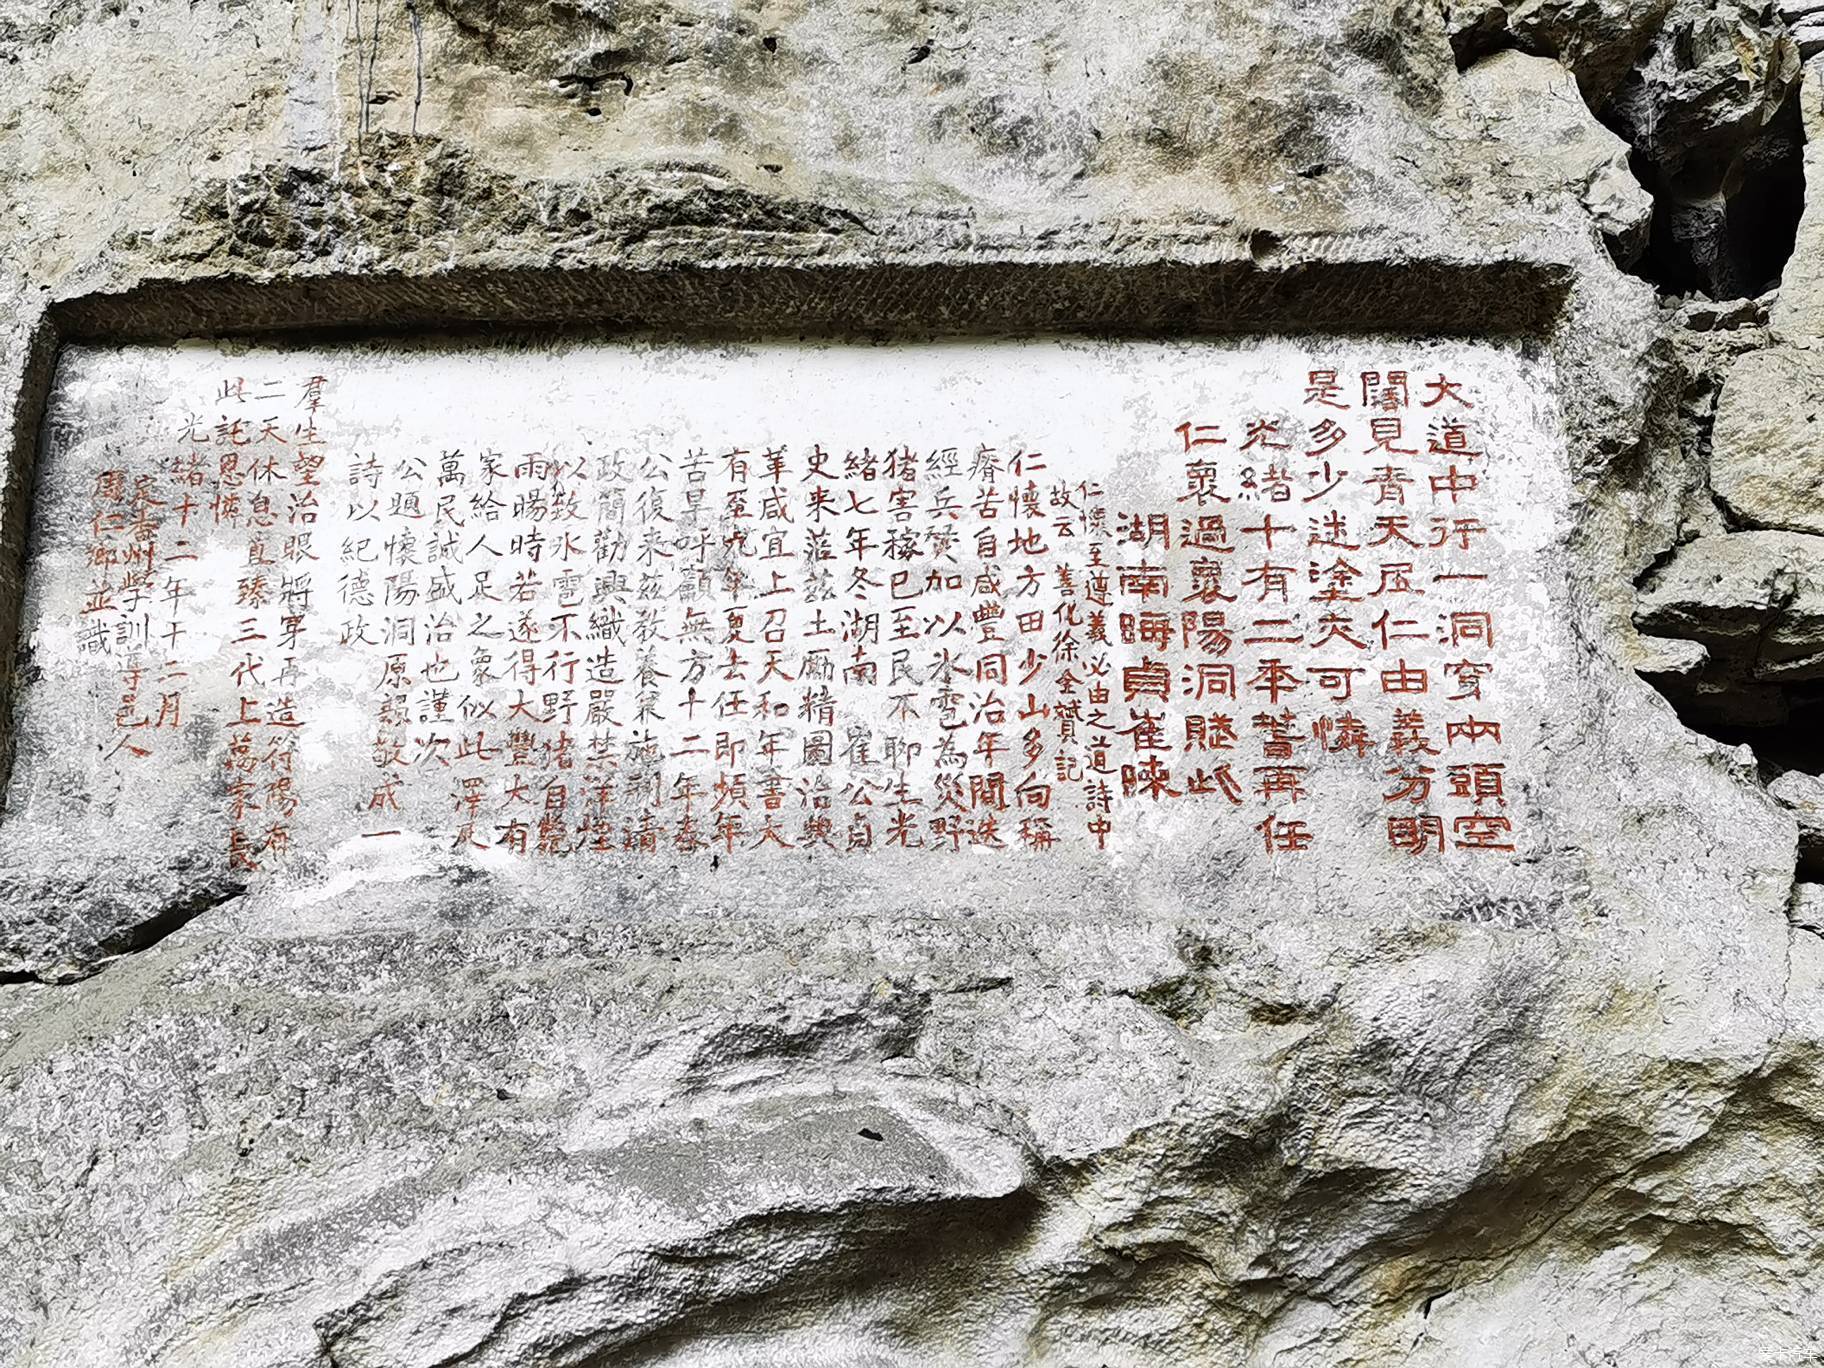 大道中行一洞穿兩頭空
闊見青天居仁由義分明
是多少迷塗灾可憐
光緒十有二秊再任
仁褱過褱陽洞賦此
湖南晦貞崔暕
仁懷至遵義必由之道詩中
故云 善化徐全贇記
仁懷地方田少山多向稱
瘠苦自咸豐同治年間迭
經兵燹加以氷雹為災野
猪害稼已至民不聊生光
緒七年冬湖南 崔公貞
史来蒞茲土勵精圖治興
革咸宜上召天和年書大
有至九年夏去任即頻年
苦旱呼籲無方十二年春
公復来茲教養兼施刑清
政簡勸興織造嚴禁洋煙
以致氷雹不行野猪自斃
雨暘時若遂得大豐大有
家給人足之象似此澤及
萬民誠盛治也謹次
公題懷陽洞原韻敬成一
詩以紀德政
羣生望治眼將穿再造符陽有
二天休息直臻三代上萬家長
此託恩憐
光緒十二年十二月
定番州學訓導邑人
周仁鄉並識